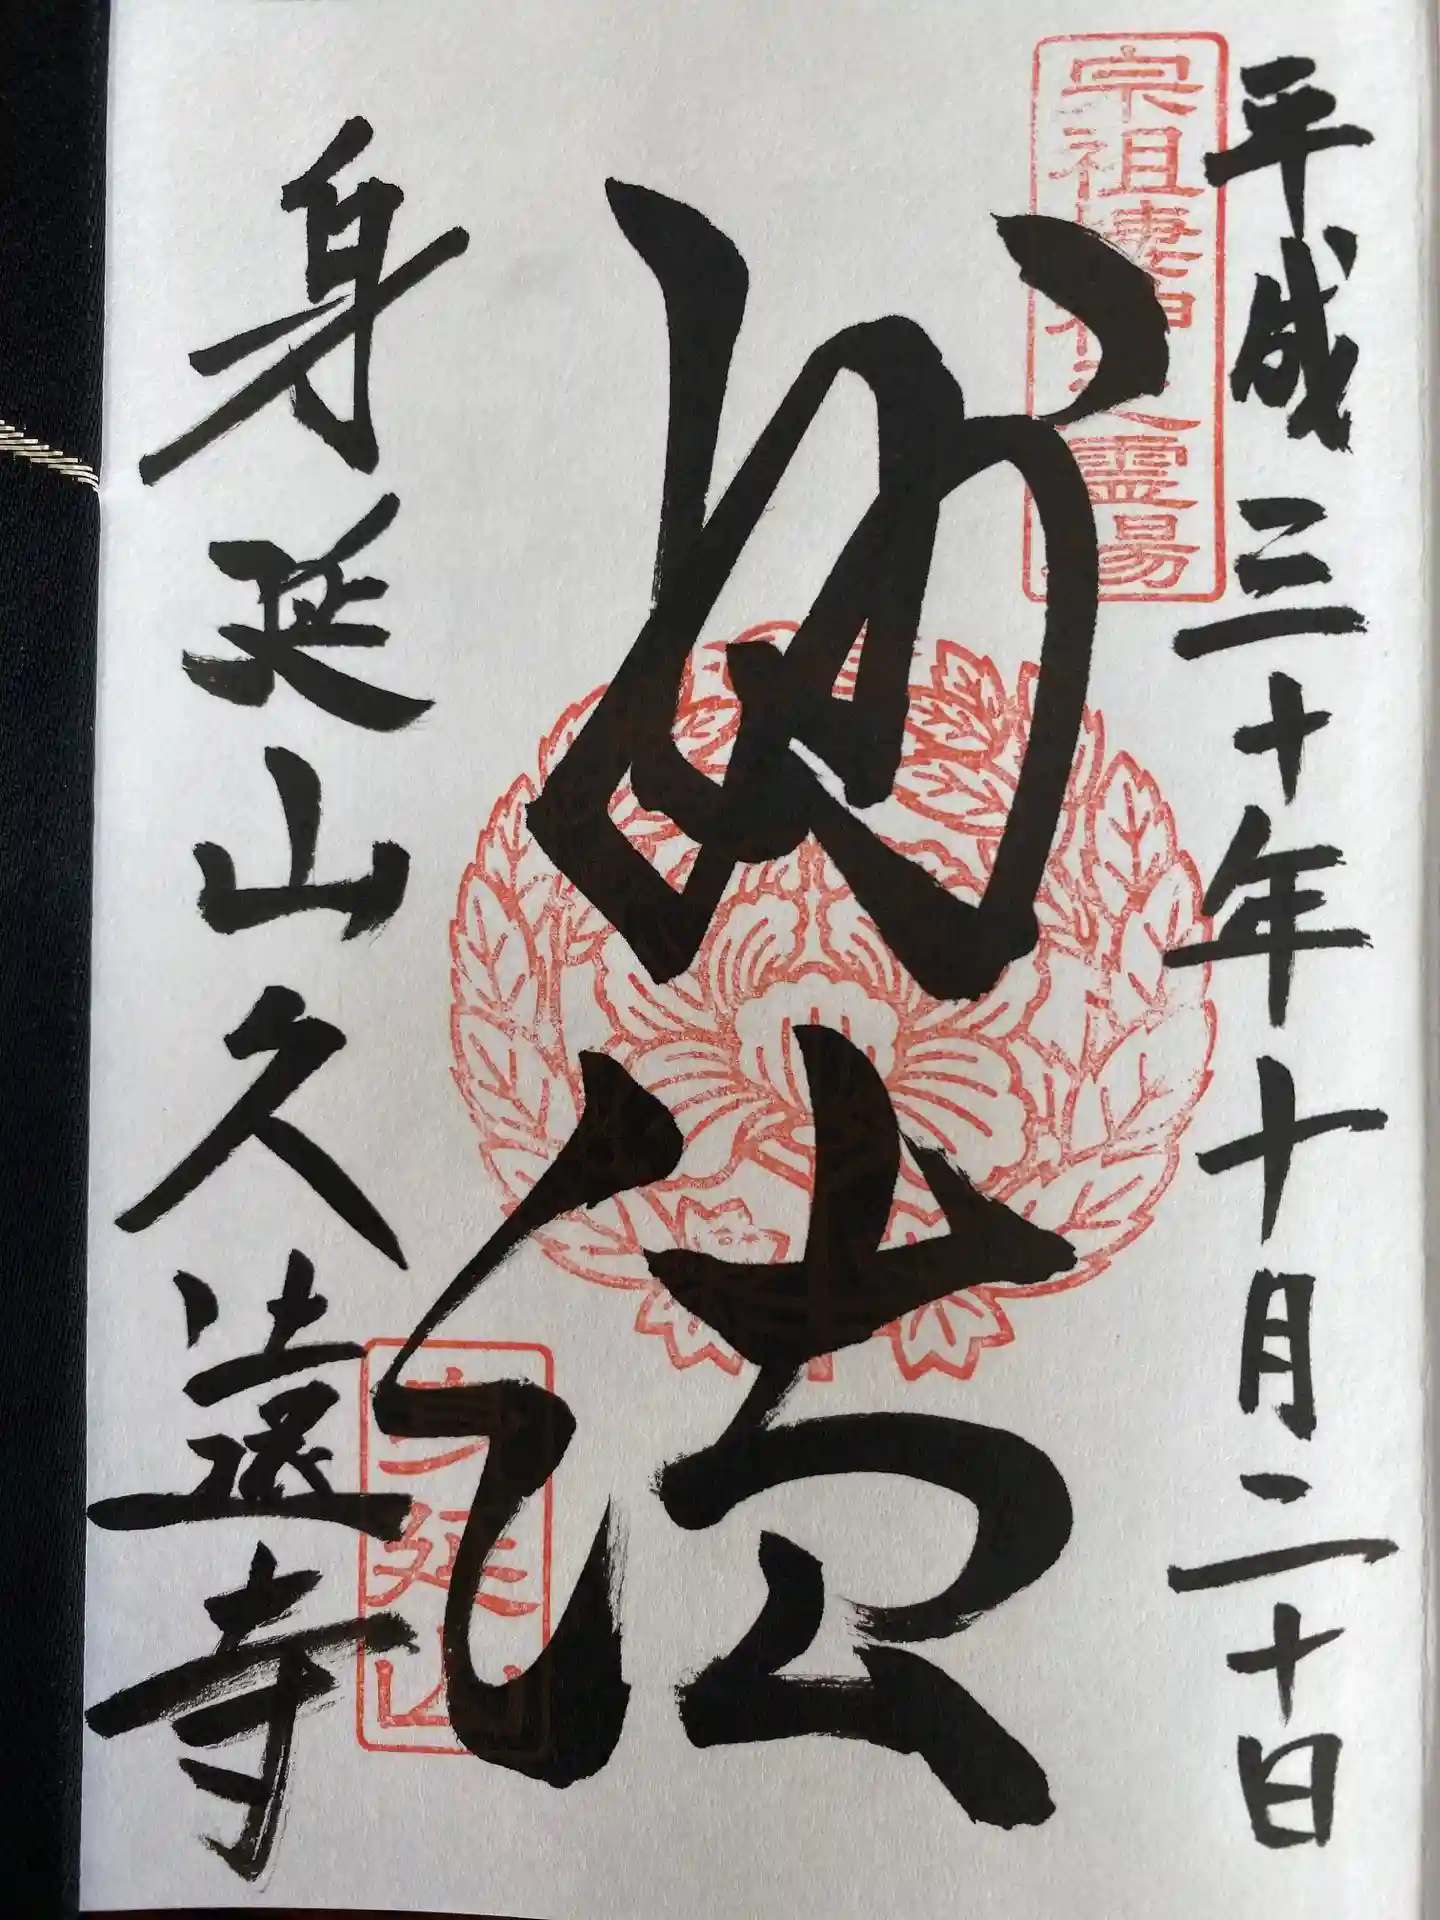 平成三十年十月二十日
宗祖棲神之霊場
妙法
身延山
身延山久遠寺